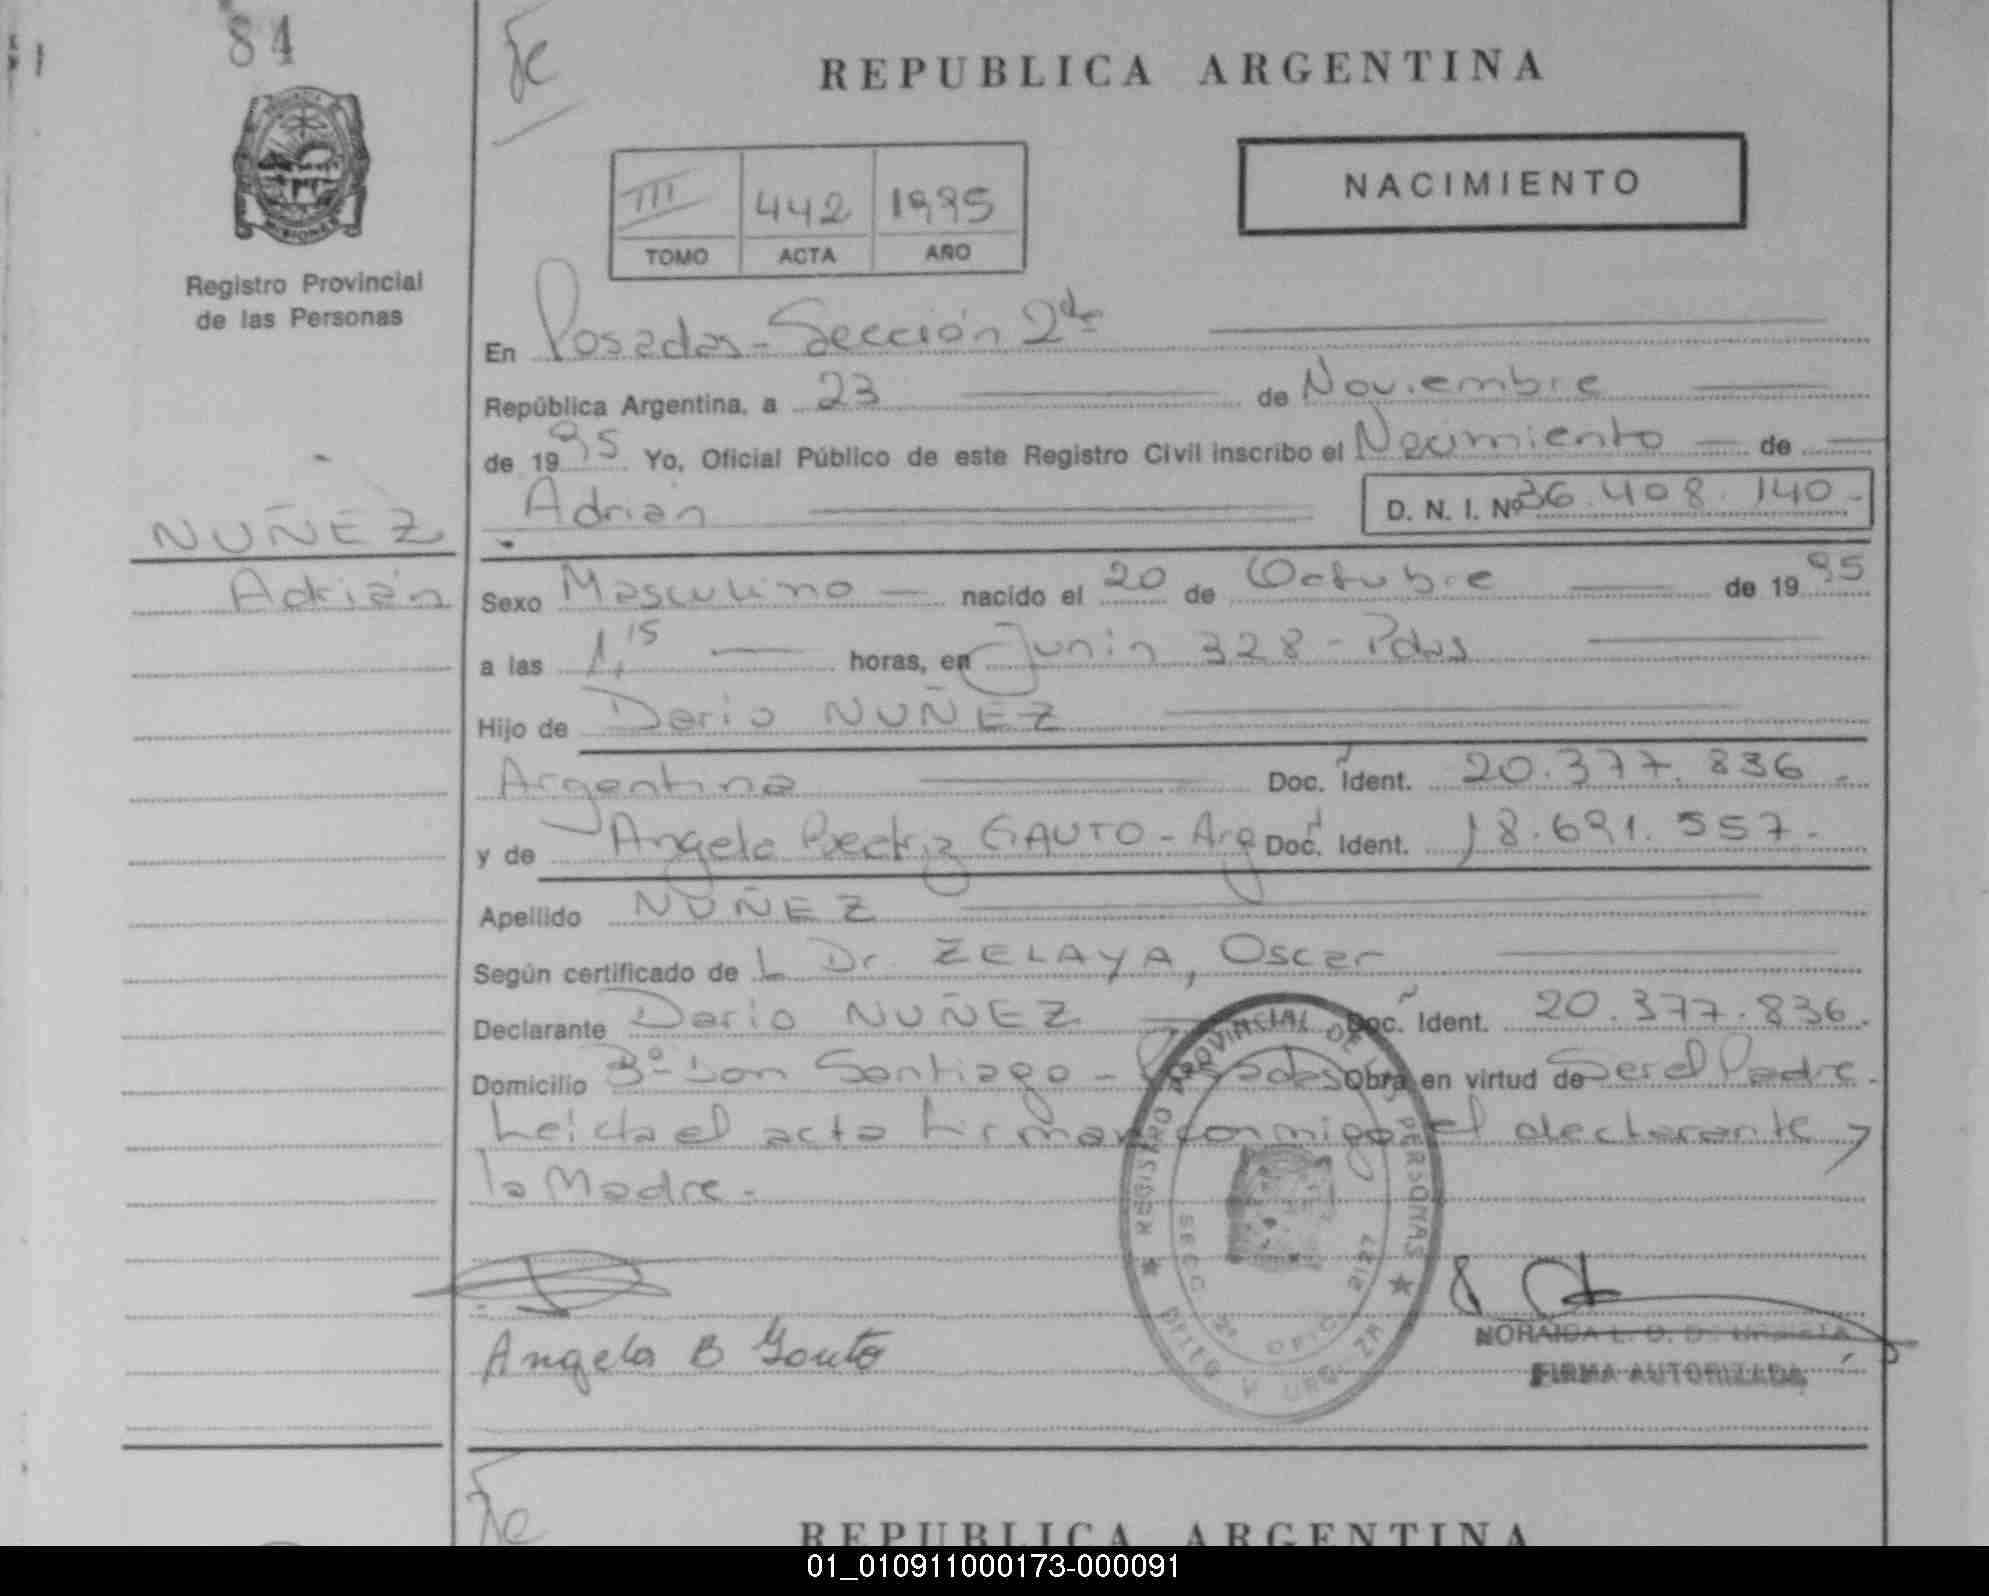 84
Je
REPUBLICA ARGENTINA
NACIMIENTO
III 442 1995
TOMO ACTA AÑO
MISIONES
Registro Provincial
de las Personas
En Posadas - Sección 2da
República Argentina, a 23 de Noviembre
de 1995 Yo, Oficial Público de este Registro Civil inscribo el Nacimiento de
Adrián D. N. I. Nº 36.408.140.-
NUÑEZ
Adrián
Sexo Masculino nacido el 20 de Octubre de 1995
a las 1,15 horas, en Junín 328 - Pdas
Hijo de Darío NUÑEZ
Argentina Doc. Ident. 20.377.836.-
y de Angela Beatriz GAUTO - Arg Doc. Ident. 18.691.557.-
Apellido NUÑEZ
Según certificado de L Dr. ZELAYA, Oscar
Declarante Darío NUÑEZ Doc. Ident. 20.377.836.
Domicilio Bº Don Santiago - Posadas Obra en virtud de Ser el Padre.
Leída el acta firman conmigo el declarante y
la Madre.-
REGISTRO PROVINCIAL DE LAS PERSONAS
SECC
Angela B Gauto
NORAIDA L.
FIRMA AUTORIZADA
Je
REPUBLICA ARGENTINA
01_010911000173-000091